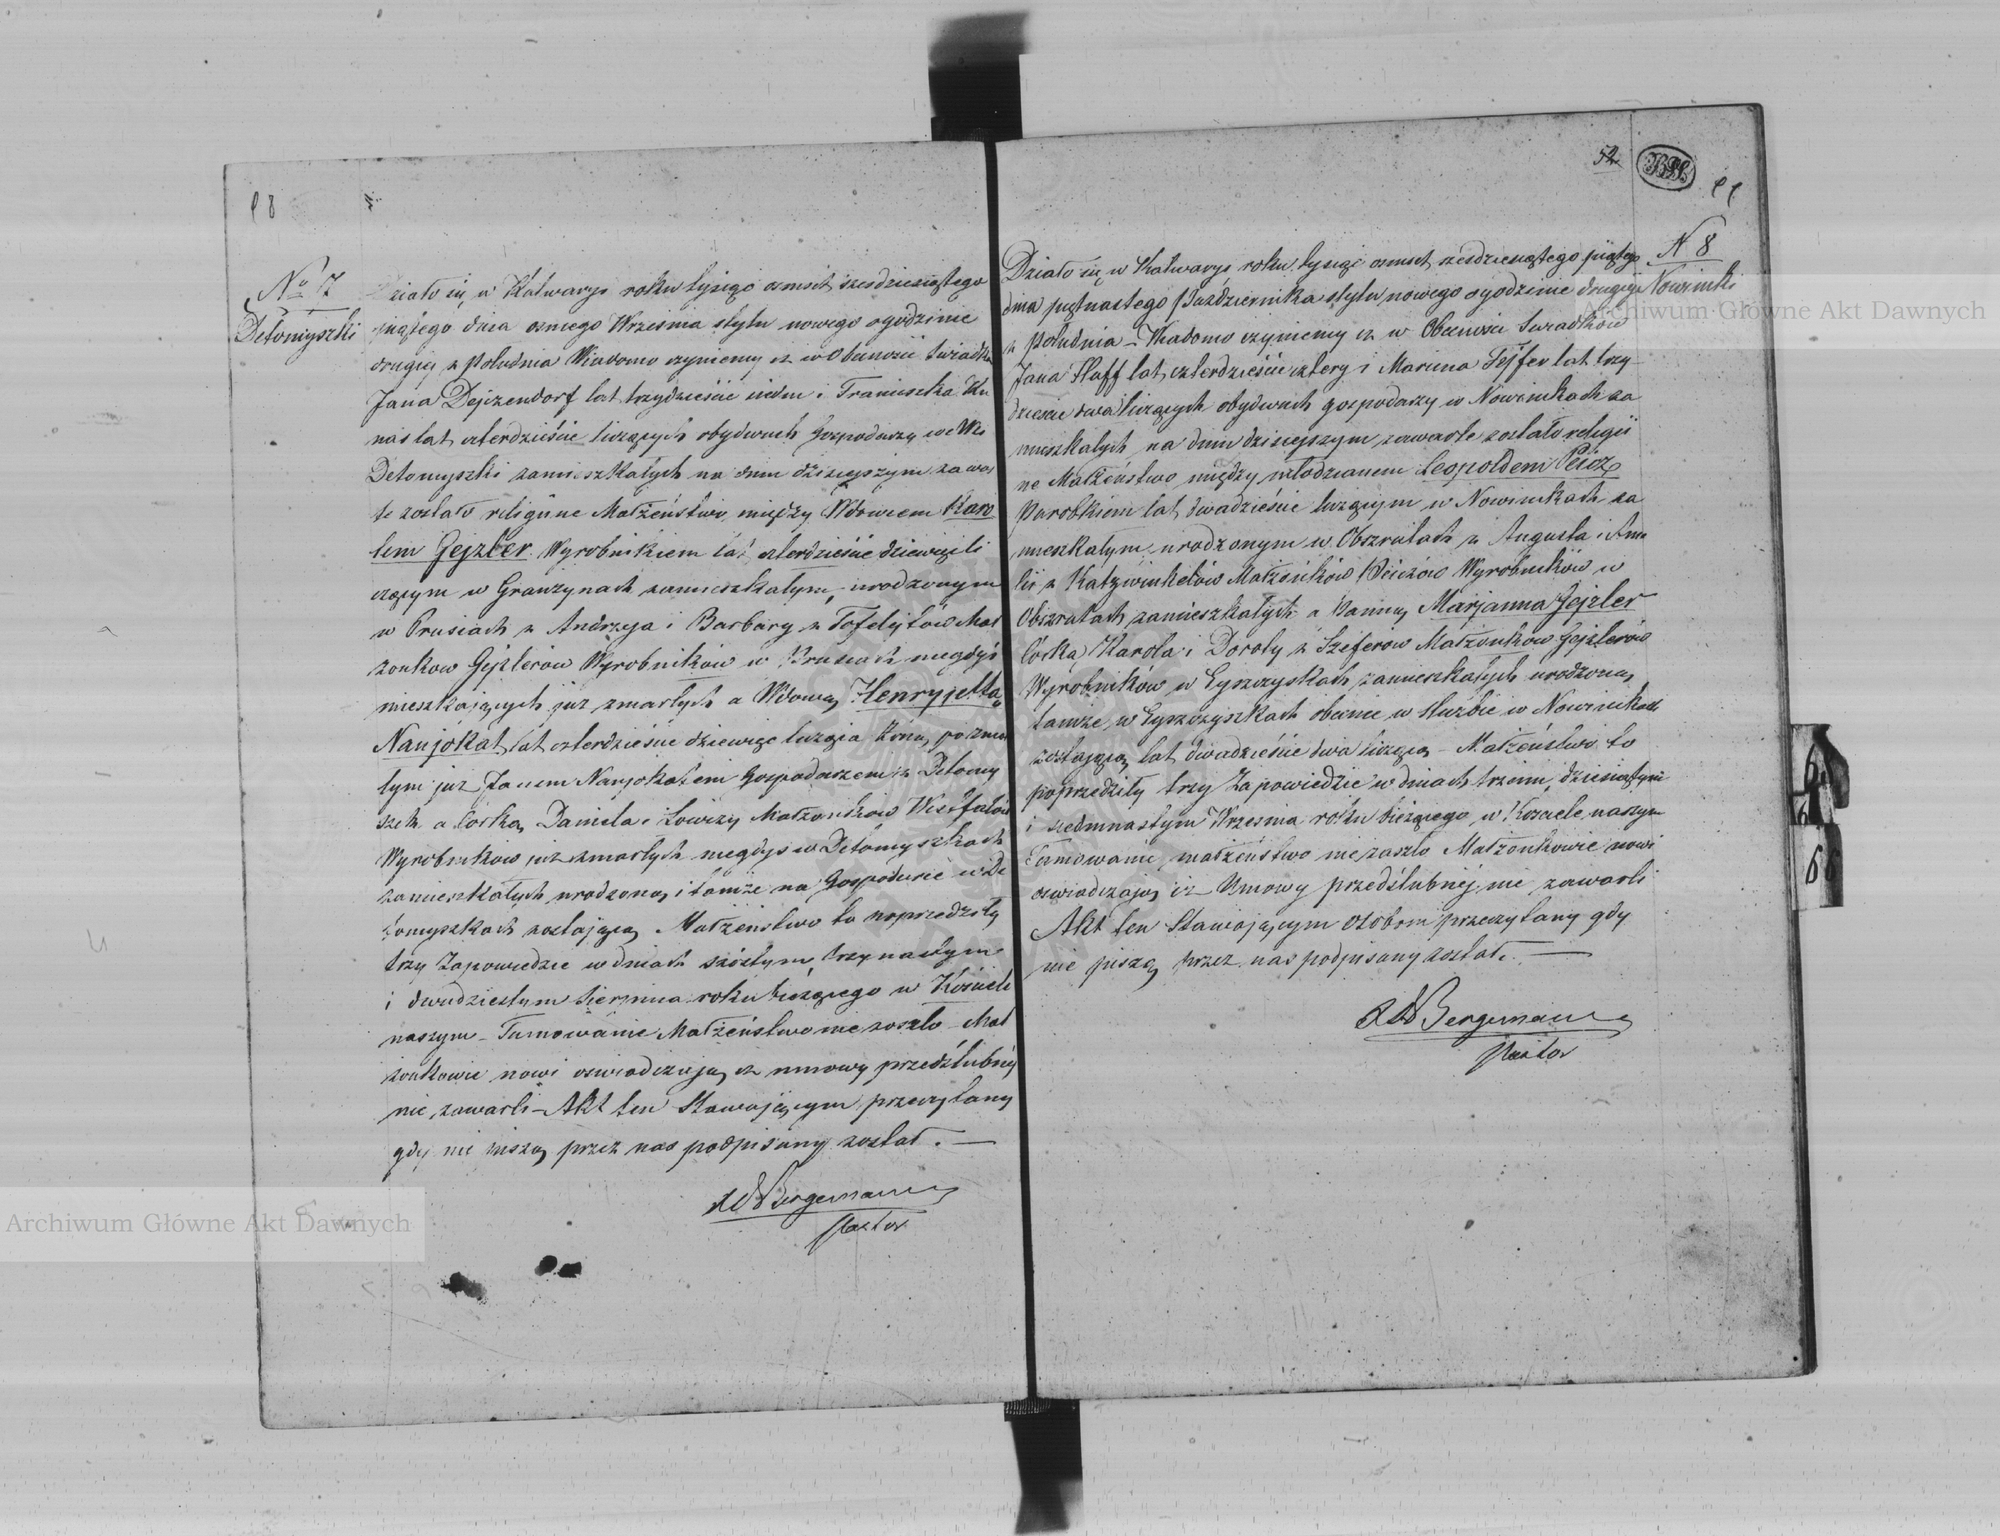 No 7
Detomyszki
Działo się w Kalwaryi roku tysiąc osmset szesdziesiątego
piątego dnia osmego Września stylu nowego ogodzinie
drugiej z południa Wiadomo czyniemy iż w Obecności Świadków
Jana Dejczendorf lat trzydzieście siedm i Franciszka Ku
nas lat czterdzieście liczących obydwuch Gospodarzy we Wsi
Detomyszki zamieszkałych na dniu dzisiejszym zawar
te zostało religijne Małżeństwo między Wdowcem Karo
lem Gejzler Wyrobnikiem lat czterdzieście dziewięć li
czącym w Granżynach zamieszkałym, urodzonym
w Prusiach z Andrzeja i Barbary z Tofelijtów Mał
żonkow Gejzlerów Wyrobników w Prusach niegdyś
mieszkających już zmarłych a Wdową Henryjettą
Naujokat lat czterdzieście dziewięć licząca Żoną po zmar
łym już Janem Naujokatem Gospodarzem z Detomy
szek a Corką Daniela i Lowizy Małżonków Westfalów
Wyrobników już zmarłych niegdyś w Detomyszkach
zamieszkałych urodzoną i tamże na Gospodarce w De
tomyszkach zostającą Małżeństwo to poprzedziły
trzy Zapowiedzie w dniach szóstym, trzynastym
i dwudziestym Sierpnia roku bieżącego w Kościele
naszym – Tamowanie Małżeństwo nie zaszło – Mał
żonkowie nowi oswiadczają iż umowy przedślubnéj
nie zawarli – Akt ten Stawającym przeczytany
gdy nie piszą przez nas podpisany został. —
Bergemann
Pastor
52
N 8
Nowiniki
Działo się w Kalwaryi roku tysiąc osmset szesdziesiątego piątego
dnia piętnastego Października stylu nowego ogodzinie drugiej
z południa – Wiadomo czyniemy iż w Obecności Swiadków
Jana Haff lat czterdzieście cztery i Marcina Fejfer lat trzy
dzieście dwa liczących obydwuch gospodarzy w Nowinikach za
mieszkałych na dniu dzisiejszym zawarte zostało religij
ne Małżeństwo między młodzianem Leopoldem Peicz
Parobkiem lat dwadzieście liczącym w Nowinikach za
mieszkałym urodzonym w Obszrutach z Augusta i Ama
lii z Katzwinkelów Małżonków Peiczów Wyrobników w
Obszrutach zamieszkałych a Panną Marjanna Gejzler
Corką Karola i Doroty z Szeferow Małżonków Gejzlerów
Wyrobników w Gyszczyskach zamieszkałych urodzoną
tamże w Gyszczyszkach obecnie w służbie w Nowinikach
zostającą lat dwadzieście dwa liczącą – Małżeństwo to
poprzedziły trzy Zapowiedzie w dniach trzecim, dziesiątym
i siedmnastym Września roku bieżącego w Kosciele naszym
Tamowanie małżeństwo nie zaszło Małżonkowie nowi
oswiadczają iż Umowy przedślubnéj nie zawarli
Akt ten Stawającym osobom przeczytany gdy
nie piszą przez nas podpisany został. —
Bergemann
Pastor
Archiwum Główne Akt Dawnych
Archiwum Główne Akt Dawnych